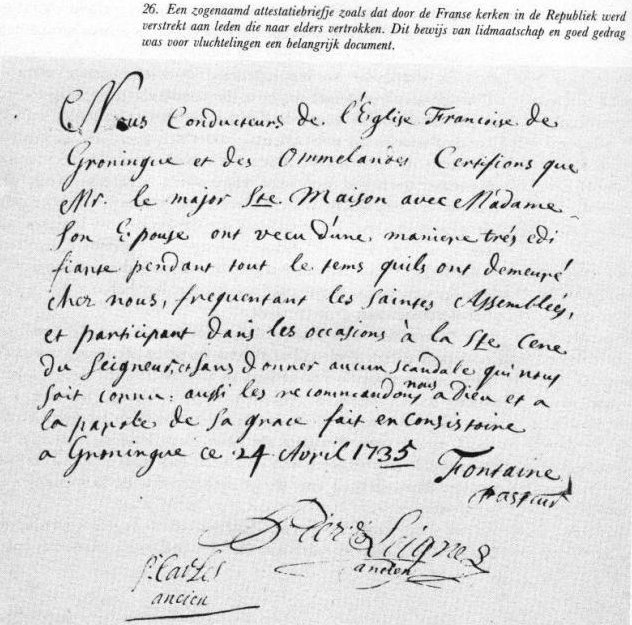 26. Een zogenaamd attestatiebriefje zoals dat door de Franse kerken in de Republiek werd
verstrekt aan leden die naar elders vertrokken. Dit bewijs van lidmaatschap en goed gedrag
was voor vluchtelingen een belangrijk document.
Nous Conducteurs de l'Eglise Francoise de
Groningue et des Ommelandes Certifions que
Mr. le major Ste. Maison avec Madame
son Epouse ont vecu d'une maniere très edi
fiante pendant tout le tems quils ont demeuré
chez nous, frequentant les saintes Assemblées,
et participant dans les occasions à la Ste. Cene
du Seigneur, et sans donner aucun scandale qui nous
soit connu: aussi les recommandons nous a Dieu et a
la parole de sa grace fait en Consistoire
a Groningue ce 24 Avril 1735
Fontaine
Pasteur
Seignes
ancien
ancien